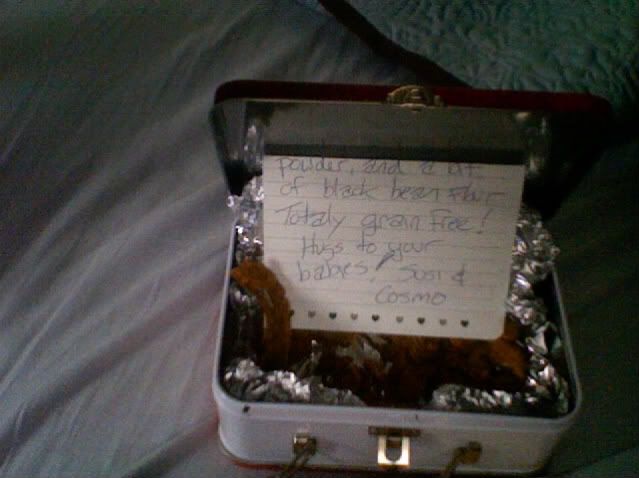 powder, and a bit
of black bean flour
Totaly grain free!
Hugs to your
babies! Susi &
Cosmo